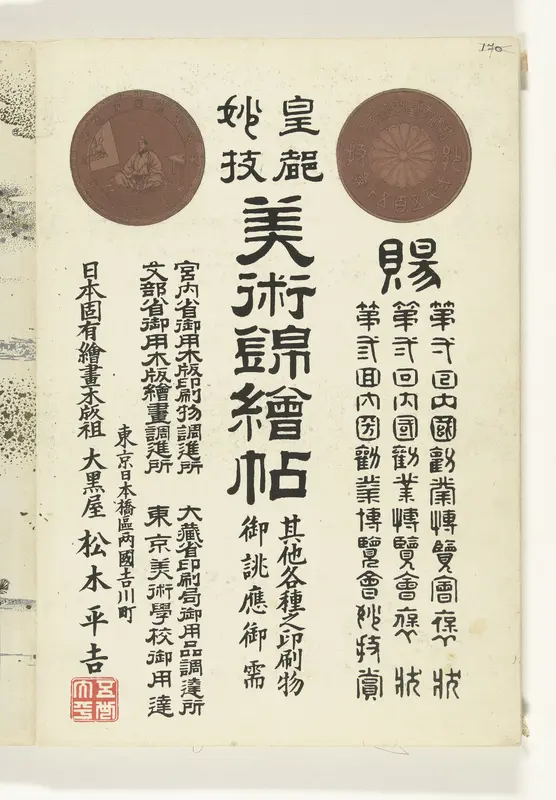 賜
第弍回内國勧業博覧會褒状
第弍回内國勧業博覧會褒状
第弍回内國勧業博覧會妙技賞
皇都
妙技
美術錦繪帖
其他各種之印刷物
御誂應御需
宮内省御用木版印刷物調進所 大藏省印刷局御用品調達所
文部省御用木版繪畫調進所 東京美術學校御用達
東京日本橋區両國吉川町
日本固有繪畫木版祖 大黒屋 松木平吉